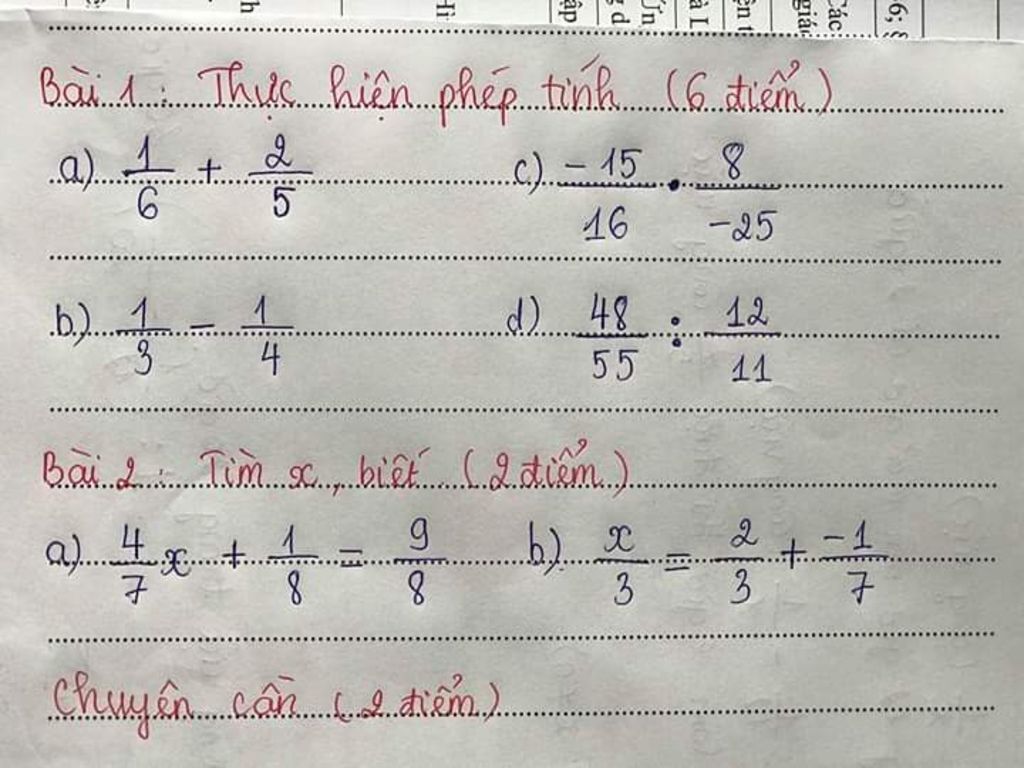 6; 8
Bài 1: Thực hiện phép tính (6 điểm)
a) 1/6 + 2/5 c) -15/16 . 8/-25
b) 1/3 - 1/4 d) 48/55 : 12/11
Bài 2: Tìm x, biết (2 điểm)
a) 4/7 x + 1/8 = 9/8 b) x/3 = 2/3 + -1/7
Chuyên cần (2 điểm)